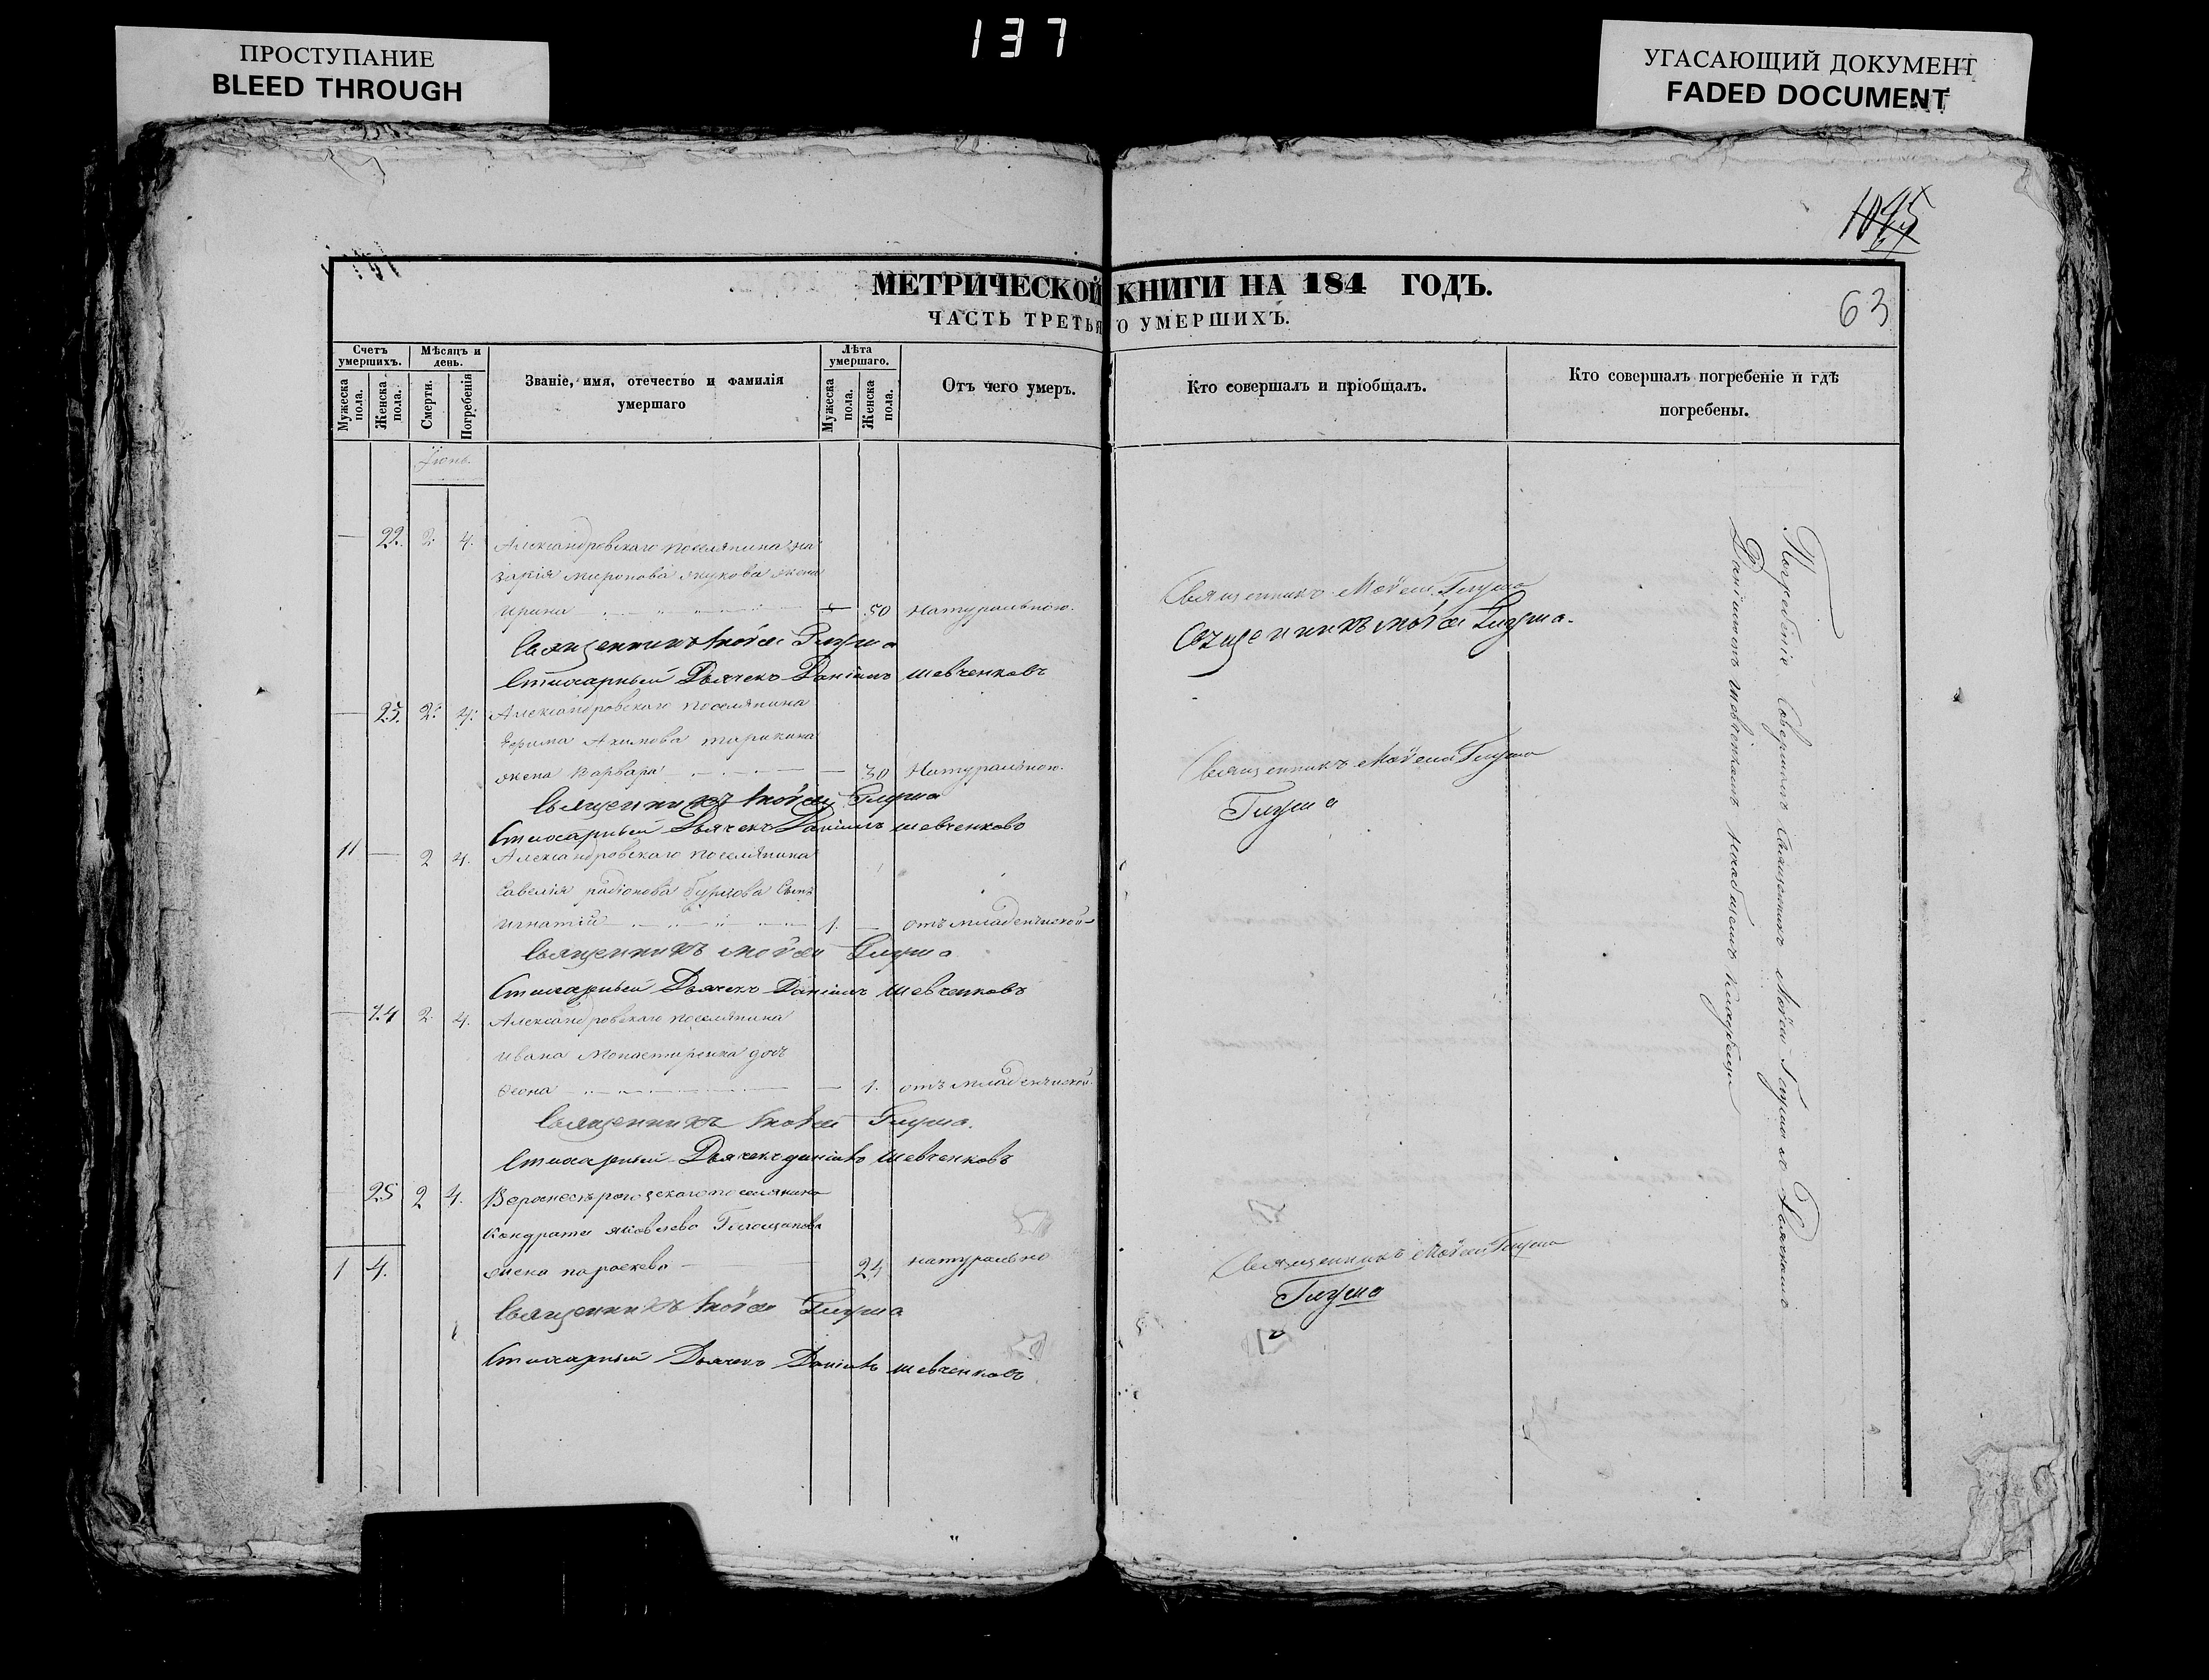 137
ПРОСТУПАНИЕ
BLEED THROUGH
УГАСАЮЩИЙ ДОКУМЕНТ
FADED DOCUMENT
1045
63
МЕТРИЧЕСКОЙ КНИГИ НА 184 ГОДЪ.
ЧАСТЬ ТРЕТЬЯ О УМЕРШИХЪ.
Счетъ умершихъ.
Мѣсяцъ и день.
Званіе, имя, отечество и фамилія умершаго
Лѣта умершаго.
Отъ чего умеръ.
Кто совершалъ и пріобщалъ.
Кто совершалъ погребеніе и гдѣ погребены.
Мужеска пола.
Женска пола.
Смерти.
Погребенія
Мужеска пола.
Женска пола.
Іюнь.
22. 2. 4. Александровскаго поселянина на
зарія миронова жукова жена
ирина 50 натуральною.
Священникъ Моѵсей Глуша
Стихарный Дьячекъ Даніилъ Шевченковъ
Священникъ Моѵсей Глуша
Священникъ Моѵсей Глуша.
23. 2. 4. Александровскаго поселянина
Акимова
жена варвара 30 Натуральною.
Священникъ Моѵсей Глуша
Стихарный Дьячекъ Даніилъ Шевченковъ
Священникъ Моѵсей Глуша
Глуша
11 2 4. Александровскаго поселянина
Савелія радіонова сынъ
игнатій 1. отъ младенческой
Священникъ Моѵсей Глуша
Стихарный Дьячекъ Даніилъ Шевченковъ
24 2. 4. Александровскаго поселянина
ивана дочь
1. отъ младенческой
Священникъ Моѵсей Глуша.
Стихарный Дьячекъ даніилъ Шевченковъ
25 2 4. поселянина
Кондрата яковлева
1 4. жена параскева 24 натурально
Священникъ Моѵсей Глуша
Стихарный Дьячекъ Даніилъ Шевченковъ
Священникъ Моѵсей Глуша
Глуша
Погребеніе Совершилъ Священникъ Моѵсей Глуша съ Дьячкомъ
Даніиломъ Шевченкомъ наобщемъ кладбищѣ